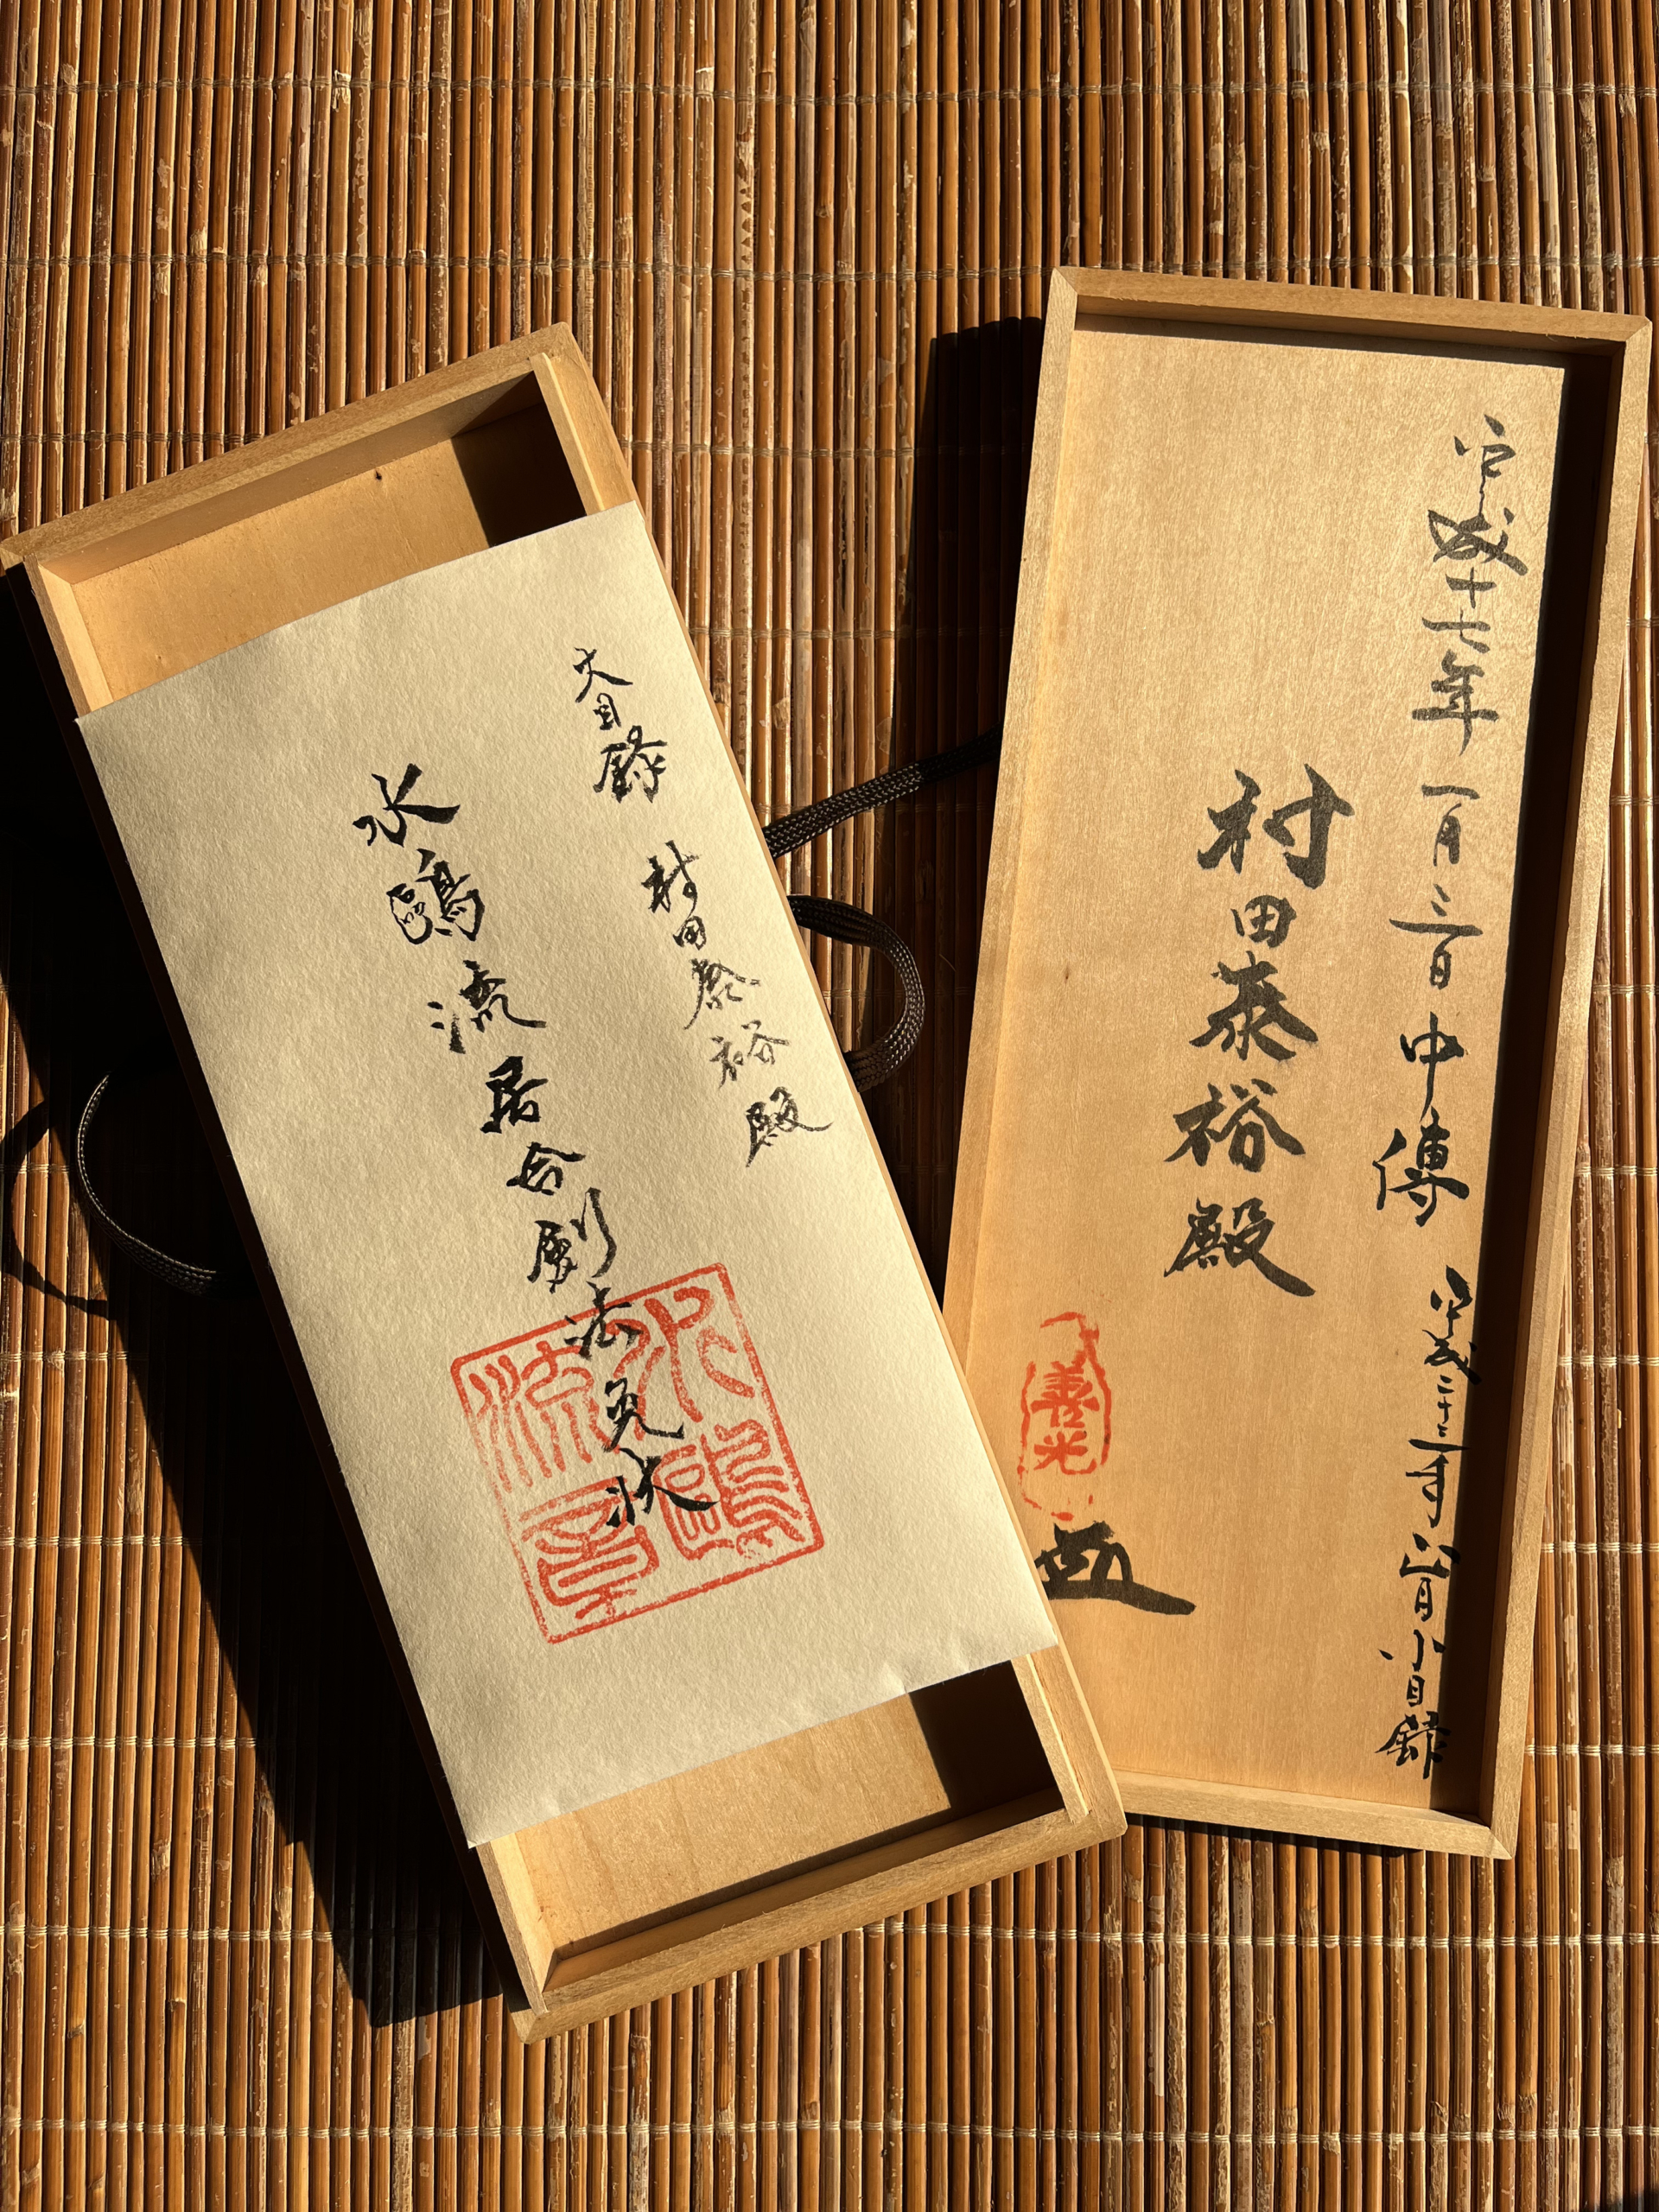 大目録 村田泰裕殿
水鷗流居合剣法免状
水鷗流章
平成十七年一月三日 中傳 平成二十二年六月小目録
村田泰裕殿
善光